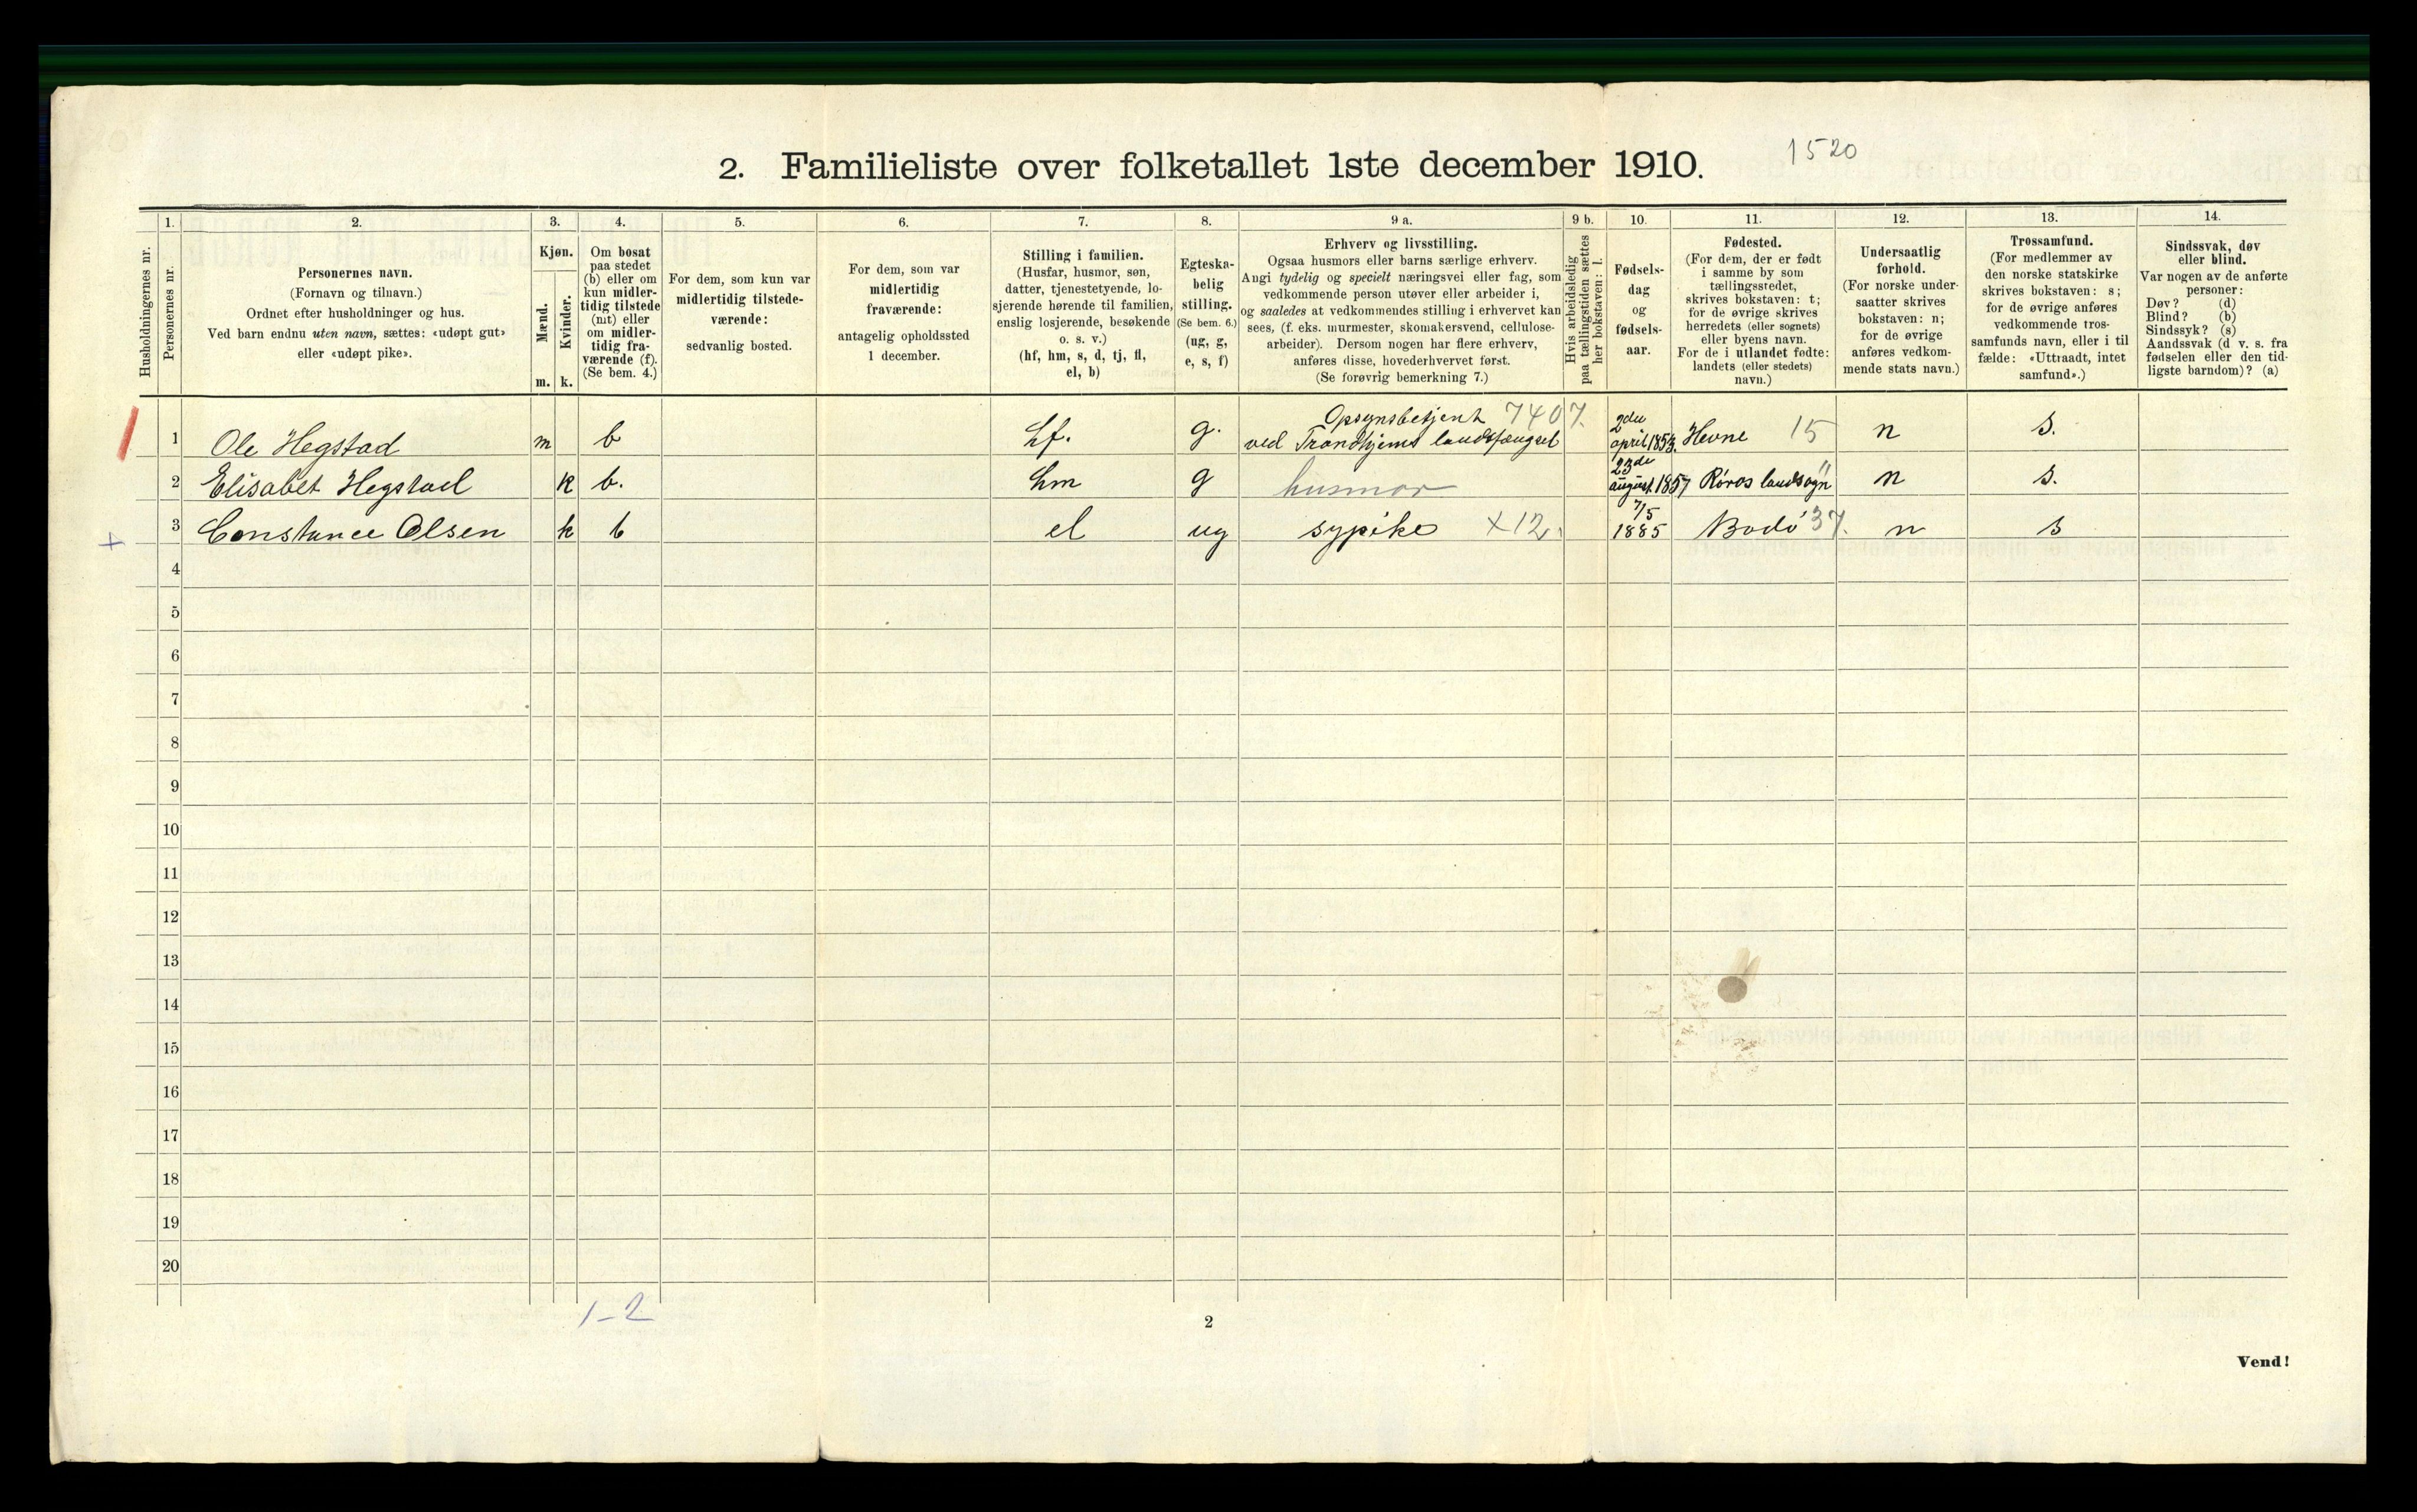 2. Familieliste over folketallet 1ste december 1910.
1520
Husholdningernes nr.
1.
Personernes nr.
2.
Personernes navn.
(Fornavn og tilnavn.)
Ordnet efter husholdninger og hus.
Ved barn endnu uten navn, sættes: «udøpt gut»
eller «udøpt pike».
3.
Kjøn.
Mænd.
Kvinder.
m.
k.
4.
Om bosat
paa stedet
(b) eller om
kun midler-
tidig tilstede
(mt) eller
om midler-
tidig fra-
værende (f).
(Se bem. 4.)
5.
For dem, som kun var
midlertidig tilstede-
værende:
sedvanlig bosted.
6.
For dem, som var
midlertidig
fraværende:
antagelig opholdssted
1 december.
7.
Stilling i familien.
(Husfar, husmor, søn,
datter, tjenestetyende, lo-
sjerende hørende til familien,
enslig losjerende, besøkende
o. s. v.)
(hf, hm, s, d, tj, fl,
el, b)
8.
Egteska-
belig
stilling.
(Se bem. 6.)
(ug, g,
e, s, f)
9 a.
Erhverv og livsstilling.
Ogsaa husmors eller barns særlige erhverv.
Angi tydelig og specielt næringsvei eller fag, som
vedkommende person utøver eller arbeider i,
og saaledes at vedkommendes stilling i erhvervet kan
sees, (f. eks. murmester, skomakersvend, cellulose-
arbeider). Dersom nogen har flere erhverv,
anføres disse, hovederhvervet først.
(Se forøvrig bemerkning 7.)
9 b.
Hvis arbeidsledig
paa tællingstiden sættes
her bokstaven: l.
10.
Fødsels-
dag
og
fødsels-
aar.
11.
Fødested.
(For dem, der er født
i samme by som
tællingsstedet,
skrives bokstaven: t;
for de øvrige skrives
herredets (eller sognets)
eller byens navn.
For de i utlandet fødte:
landets (eller stedets)
navn.)
12.
Undersaatlig
forhold.
(For norske under-
saatter skrives
bokstaven: n;
for de øvrige
anføres vedkom-
mende stats navn.)
13.
Trossamfund.
(For medlemmer av
den norske statskirke
skrives bokstaven: s;
for de øvrige anføres
vedkommende tros-
samfunds navn, eller i til
fælde: «Uttraadt, intet
samfund».)
14.
Sindssvak, døv
eller blind.
Var nogen av de anførte
personer:
Døv? (d)
Blind? (b)
Sindssyk? (s)
Aandssvak (d v. s. fra
fødselen eller den tid-
ligste barndom)? (a)
Opsynsbetjent 7407. 2den
1 Ole Hegstad m b hf. g. ved Trondhjems landsfængsel april 1853. Hevne 15 n s.
23de
2 Elisabet Hegstad k b. hm g husmor august 1857 Røros landsogn " n s.
7/5
3 Constance Olsen k b el ug sypike X12. 1885 Bodø 37. n s
4
5
6
7
8
9
10
11
12
13
14
15
16
17
18
19
20
1-2
2
Vend!